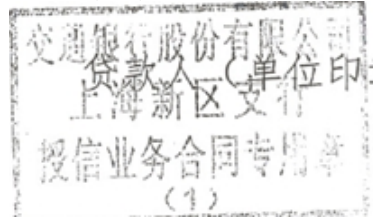 交通银行股份有限公司
贷款人（单位印
上海新区支行
授信业务合同专用章
(1)